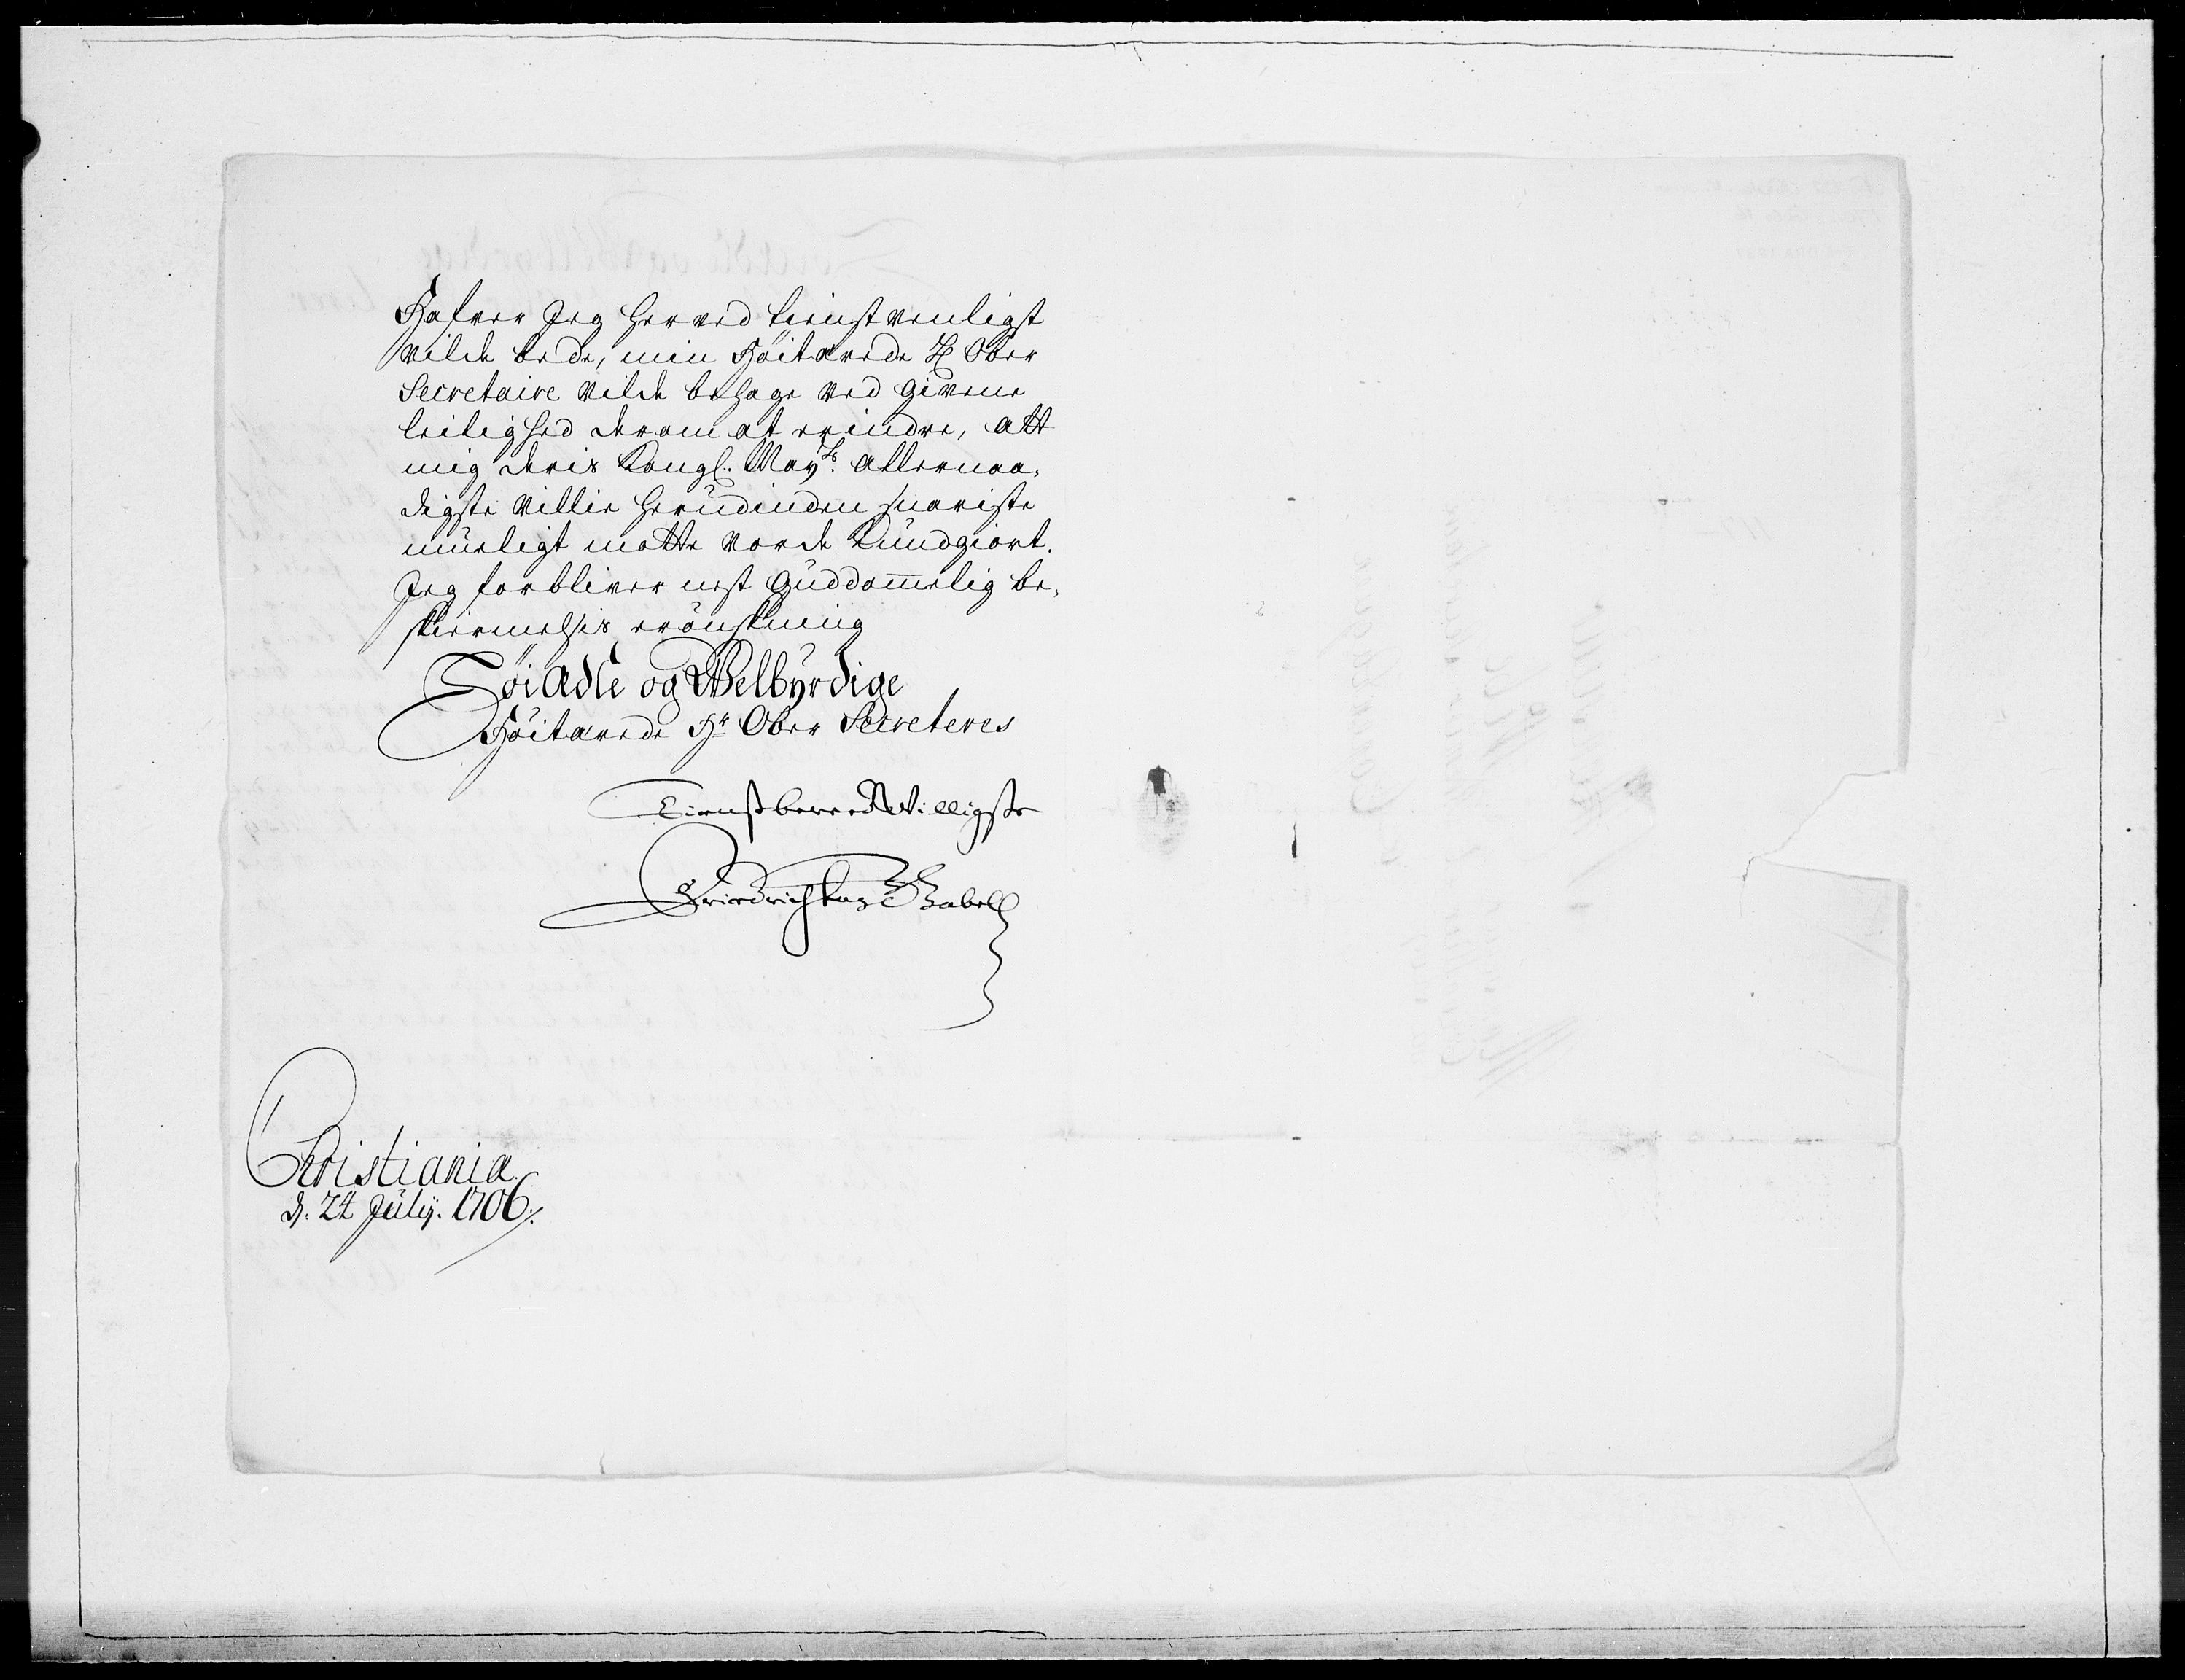 Hafver Jeg herved tienstvenligst
vilde bede, min Höitærede H Ober
Secretaire vilde behage ved givene
leilighed derom at erindre, att
mig deris Kongl. Mayts. allernaa,
digste villie herudinden snariste
müeligt motte vorde Kundgiort.
Jeg forbliver nest Guddommelig be,
skiermelsis erönskning
HöiÆdle og Welbyrdige
Höitærede Hr Ober Secreteres
TienstberedWilligste
Friedrich
Christiania
d. 24 Julij. 1706.